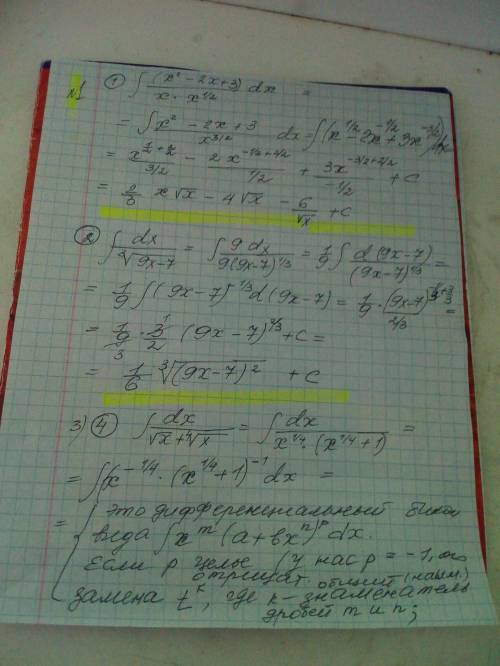 №1 ① ∫ (x² - 2x + 3) dx / (x · x^{1/2}) =
= ∫ (x² - 2x + 3) / x^{3/2} dx = ∫ (x^{1/2} - 2x^{-1/2} + 3x^{-3/2}) dx
= x^{1/2 + 2/2} / (3/2) - 2x^{-1/2+2/2} / (1/2) + 3x^{-3/2+2/2} / (-1/2) + C
x√x - 4√x - 6/√x + C
② ∫ dx / ∛(9x-7) = ∫ 9dx / 9(9x-7)^{1/3} = 1/9 ∫ d(9x-7) / (9x-7)^{1/3} =
= 1/9 ∫ (9x-7)^{-1/3} d(9x-7) = 1/9 · (9x-7) / (2/3) =
= 1/9 · 3/2 (9x-7)^{2/3} + C =
= 1/6 ∛(9x-7)² + C
3) ④ ∫ dx / (√x + ⁴√x) = ∫ dx / (x^{1/4} · (x^{1/4} + 1)) =
= ∫ (x^{-1/4} · (x^{1/4} + 1)^{-1} dx =
= { это дифференциальный бином
вида ∫ x^m (a + bx^n)^p dx.
Если p целое (у нас p = -1,
отрицат.
замена t^k, где k - знаменатель
дробей m и n;